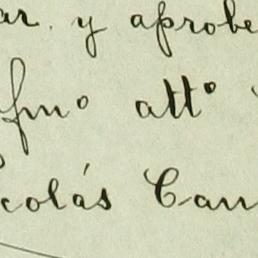 ar. y aprobe
fmo atto
colás Can